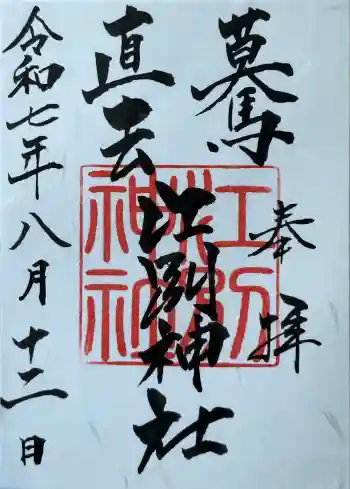 驀
直去
奉拝
江別神社
令和七年八月十二日
江別神社